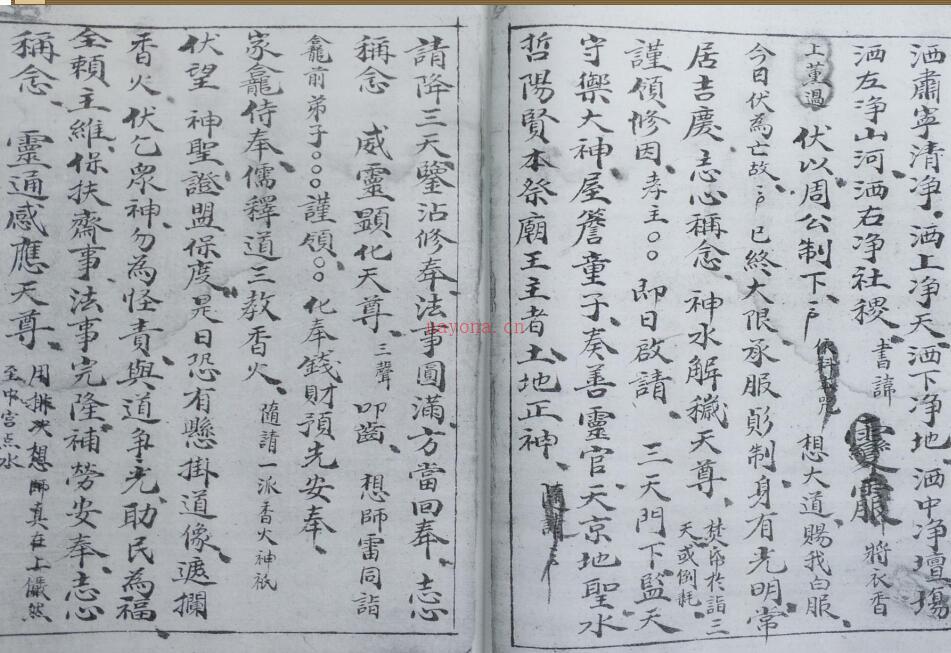 洒肅寧清净。洒上净天、洒下净地、洒中净壇塲
洒左净山河、洒右净社稷、書諱 將衣香
上薰過 伏以周公制下 想大道賜我白服
今日伏為亡故 已終大限承服制身有光明常
居吉慶、志心稱念、神水解穢天尊、於詣三天或倒
謹領修因、孝主〇〇 即日啟請 三天門下監天
守禦大神、屋簷童子、奏善靈官、天京地聖水
哲陽賢本祭廟王主者土地正神、隨請
請降三天鑒沾修奉、法事圓滿、方當回奉、志心
稱念、威靈顯化天尊、三聲 叩齒、想師雷同詣
龕前弟子〇〇〇謹領〇〇化奉錢財預先安奉、
家龕侍奉儒釋道三教香火、隨請一派香火神祇
伏望 神聖證盟保度、是日恐有懸掛道像遮攔
香火、伏乞衆神勿為怪責、與道争光、助民為福、
全賴主維、保扶齋事、法事完隆、補勞安奉、志心
稱念、靈通感應天尊、用排次想師真在上儼然
至中宮点水
nayona.cn